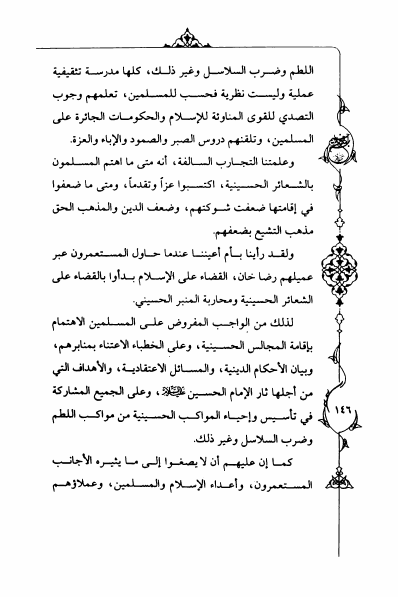 اللطم وضرب السلاسل وغير ذلك، كلها مدرسة تثقيفية
عملية وليست نظرية فحسب للمسلمين، تعلمهم وجوب
التصدي للقوى المناوئة للإسلام والحكومات الجائرة على
المسلمين، وتلقنهم دروس الصبر والصمود والإباء والعزة.
وعلمتنا التجارب السالفة، أنه متى ما اهتم المسلمون
بالشعائر الحسينية، اكتسبوا عزاً وتقدماً، ومتى ما ضعفوا
في إقامتها ضعفت شوكتهم، وضعف الدين والمذهب الحق
مذهب التشيع بضعفهم.
ولقد رأينا بأم أعيننا عندما حاول المستعمرون عبر
عميلهم رضا خان، القضاء على الإسلام بدأوا بالقضاء على
الشعائر الحسينية ومحاربة المنبر الحسيني.
لذلك من الواجب المفروض على المسلمين الاهتمام
بإقامة المجالس الحسينية، وعلى الخطباء الاعتناء بمنابرهم،
وبيان الأحكام الدينية، والمسائل الاعتقادية، والأهداف التي
من أجلها ثار الإمام الحسين، وعلى الجميع المشاركة
في تأسيس وإحياء المواكب الحسينية من مواكب اللطم
وضرب السلاسل وغير ذلك.
كما إن عليهم أن لا يصغوا إلى ما يثيره الأجانب
المستعمرون، وأعداء الإسلام والمسلمين، وعملاؤهم
١٤٦